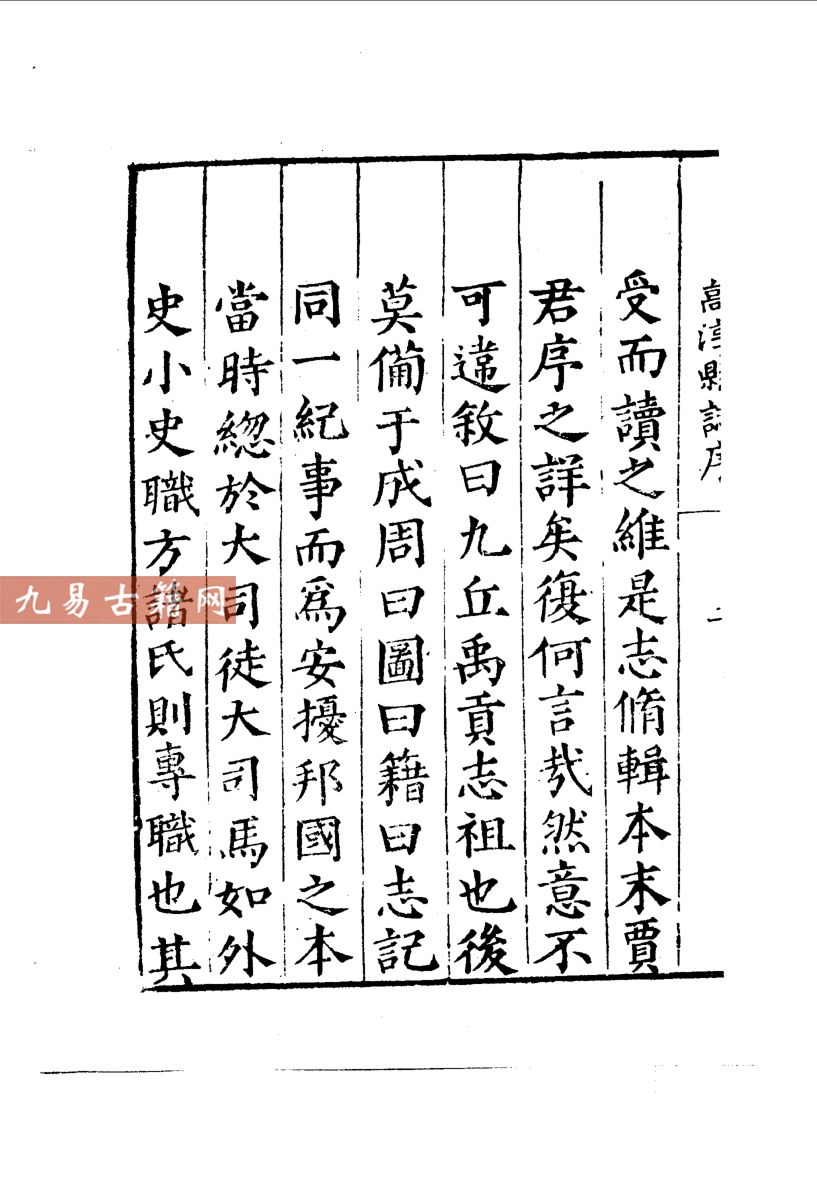 高淳縣誌序
受而讀之維是志脩輯本末賈
君序之詳矣復何言㢤然意不
可違敘曰九丘禹貢志祖也後
莫備于成周曰圖曰籍曰志記
同一紀事而爲安擾邦國之本
當時緫於大司徒大司馬如外
史小史職方諸氏則專職也其
九易古籍网